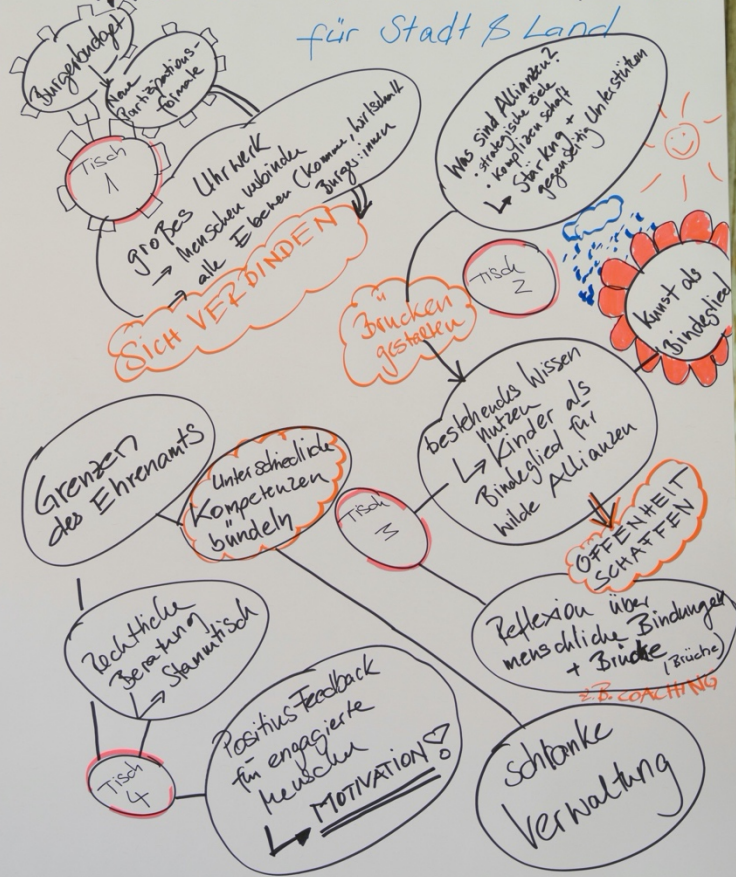 für Stadt & Land
Bürgerbudget
Neue
Partizipations-
formate
Tisch
1
großes Uhrwerk
→ Menschen verbinden
→ alle Ebenen (Kommune, Wirtschaft
Bürger:innen
SICH VERBINDEN
Was sind Allianzen?
• strategische Ziele
• Komplizenschaft
↳ Stärkng +
gegenseitig Unterstützen
Tisch
2
Brücken
gestalten
Kunst als
Bindeglied
bestehendes Wissen
nutzen
↳ Kinder als
Bindeglied für
wilde Allianzen
Tisch
3
OFFENHEIT
SCHAFFEN
Grenzen
des Ehrenamts
Unterschiedliche
Kompetenzen
bündeln
Reflexion über
menschliche Bindungen
+ Brücke (Brüche)
z.B. COACHING
Rechtliche
Beratung
↳ Stammtisch
Tisch
4
Positives Feedback
für engagierte
Menschen
↳ MOTIVATION!
schlanke
Verwaltung